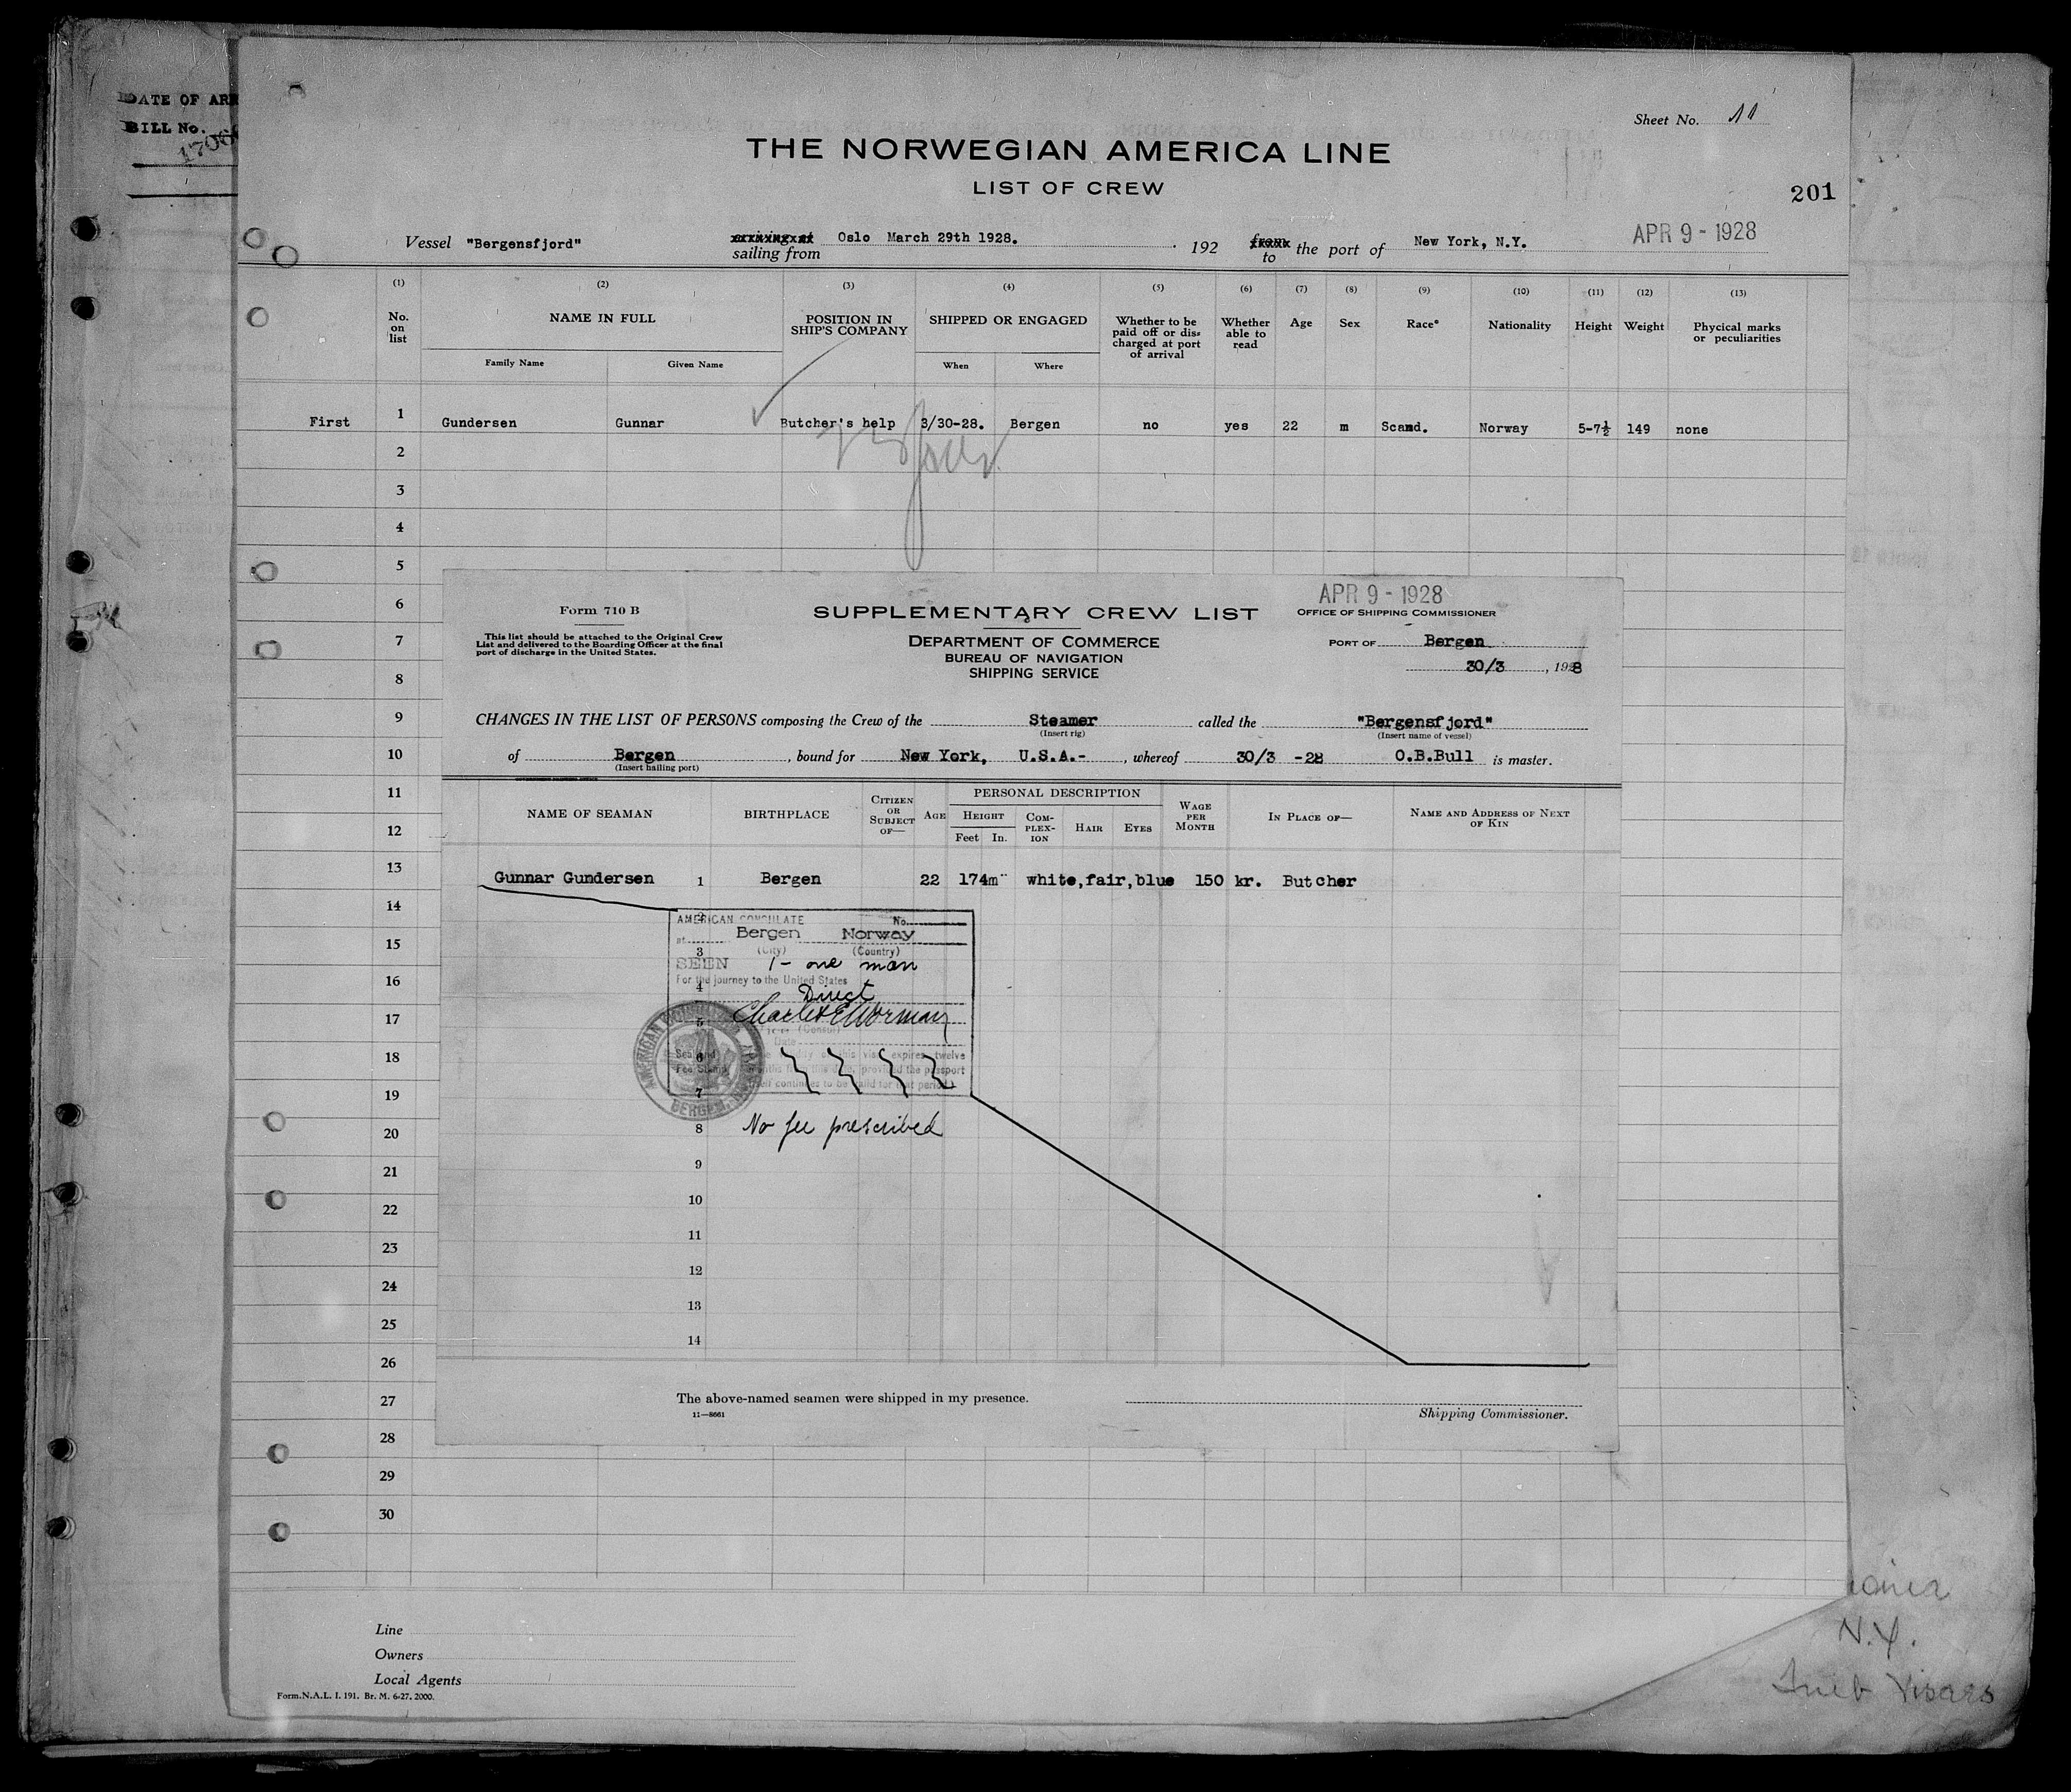 DATE OF ARR
BILL No.
Sheet No. 11
THE NORWEGIAN AMERICA LINE
LIST OF CREW
201
Vessel "Bergensfjord" arriving at sailing from Oslo March 29th 1928. 192 from to the port of New York, N.Y. APR 9 - 1928
(1) (2) (3) (4) (5) (6) (7) (8) (9) (10) (11) (12) (13)
No. on list NAME IN FULL POSITION IN SHIP'S COMPANY SHIPPED OR ENGAGED Whether to be paid off or dis= charged at port of arrival Whether able to read Age Sex Race* Nationality Height Weight Phycical marks or peculiarities
Family Name Given Name When Where
First 1 Gundersen Gunnar Butcher's help 3/30-28. Bergen no yes 22 m Scand. Norway 5-7½ 149 none
2
3
4
5
6
7
8
9
10
11
12
13
14
15
16
17
18
19
20
21
22
23
24
25
26
27
28
29
30
APR 9 - 1928
Form 710 B
SUPPLEMENTARY CREW LIST
OFFICE OF SHIPPING COMMISSIONER
This list should be attached to the Original Crew
List and delivered to the Boarding Officer at the final
port of discharge in the United States.
DEPARTMENT OF COMMERCE
BUREAU OF NAVIGATION
SHIPPING SERVICE
PORT OF Bergen
30/3, 1928
CHANGES IN THE LIST OF PERSONS composing the Crew of the Steamer called the "Bergensfjord"
(Insert rig) (Insert name of vessel)
of Bergen, bound for New York, U.S.A.-, whereof 30/3 -28 O.B.Bull is master.
(Insert hailing port)
NAME OF SEAMAN BIRTHPLACE CITIZEN OR SUBJECT OF— AGE PERSONAL DESCRIPTION WAGE PER MONTH IN PLACE OF— NAME AND ADDRESS OF NEXT OF KIN
HEIGHT COM- PLEX- ION HAIR EYES
Feet In.
Gunnar Gundersen 1 Bergen 22 174m white,fair,blue 150 kr. Butcher
2
3
4
5
6
7
8
9
10
11
12
13
14
AMERICAN CONSULATE No.
at Bergen Norway
(City) (Country)
SEEN 1- one man
For the journey to the United States
Direct
(Consul)
Date
No fee prescribed
The above-named seamen were shipped in my presence.
11—8661
Shipping Commissioner.
Line
Owners
Local Agents
Form.N.A.L. I. 191. Br. M. 6-27. 2000.
N.Y.